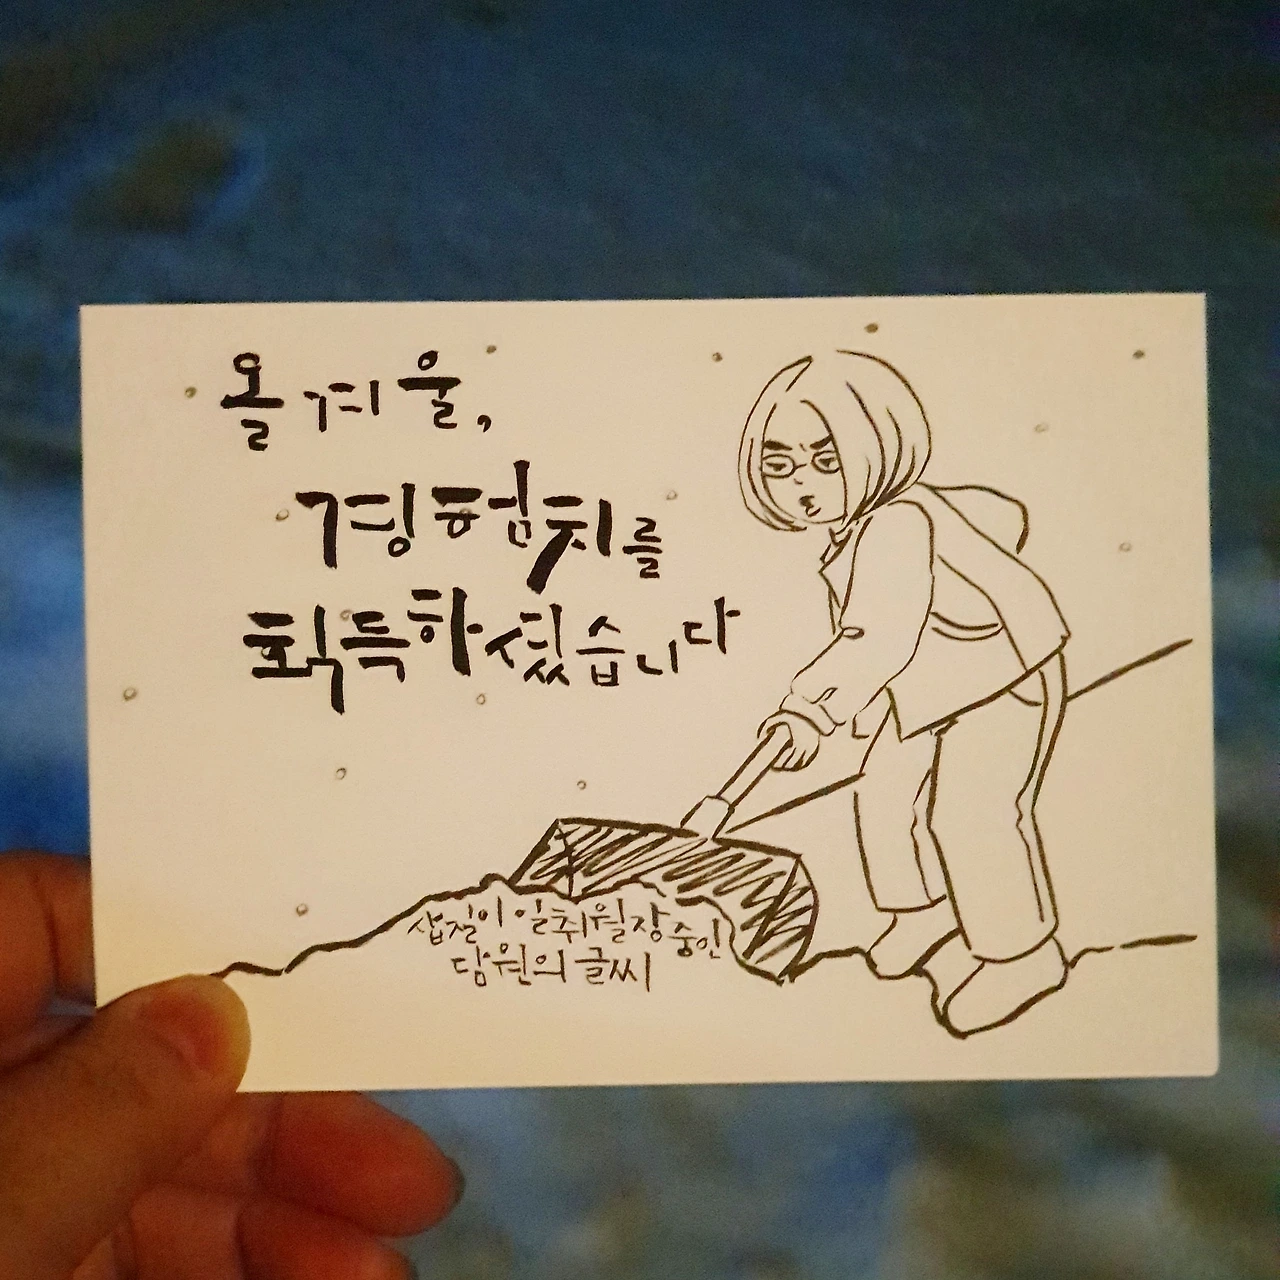 올 겨울,
경험치를
획득하셨습니다
삽질이 일취월장 중인
담원의 글씨